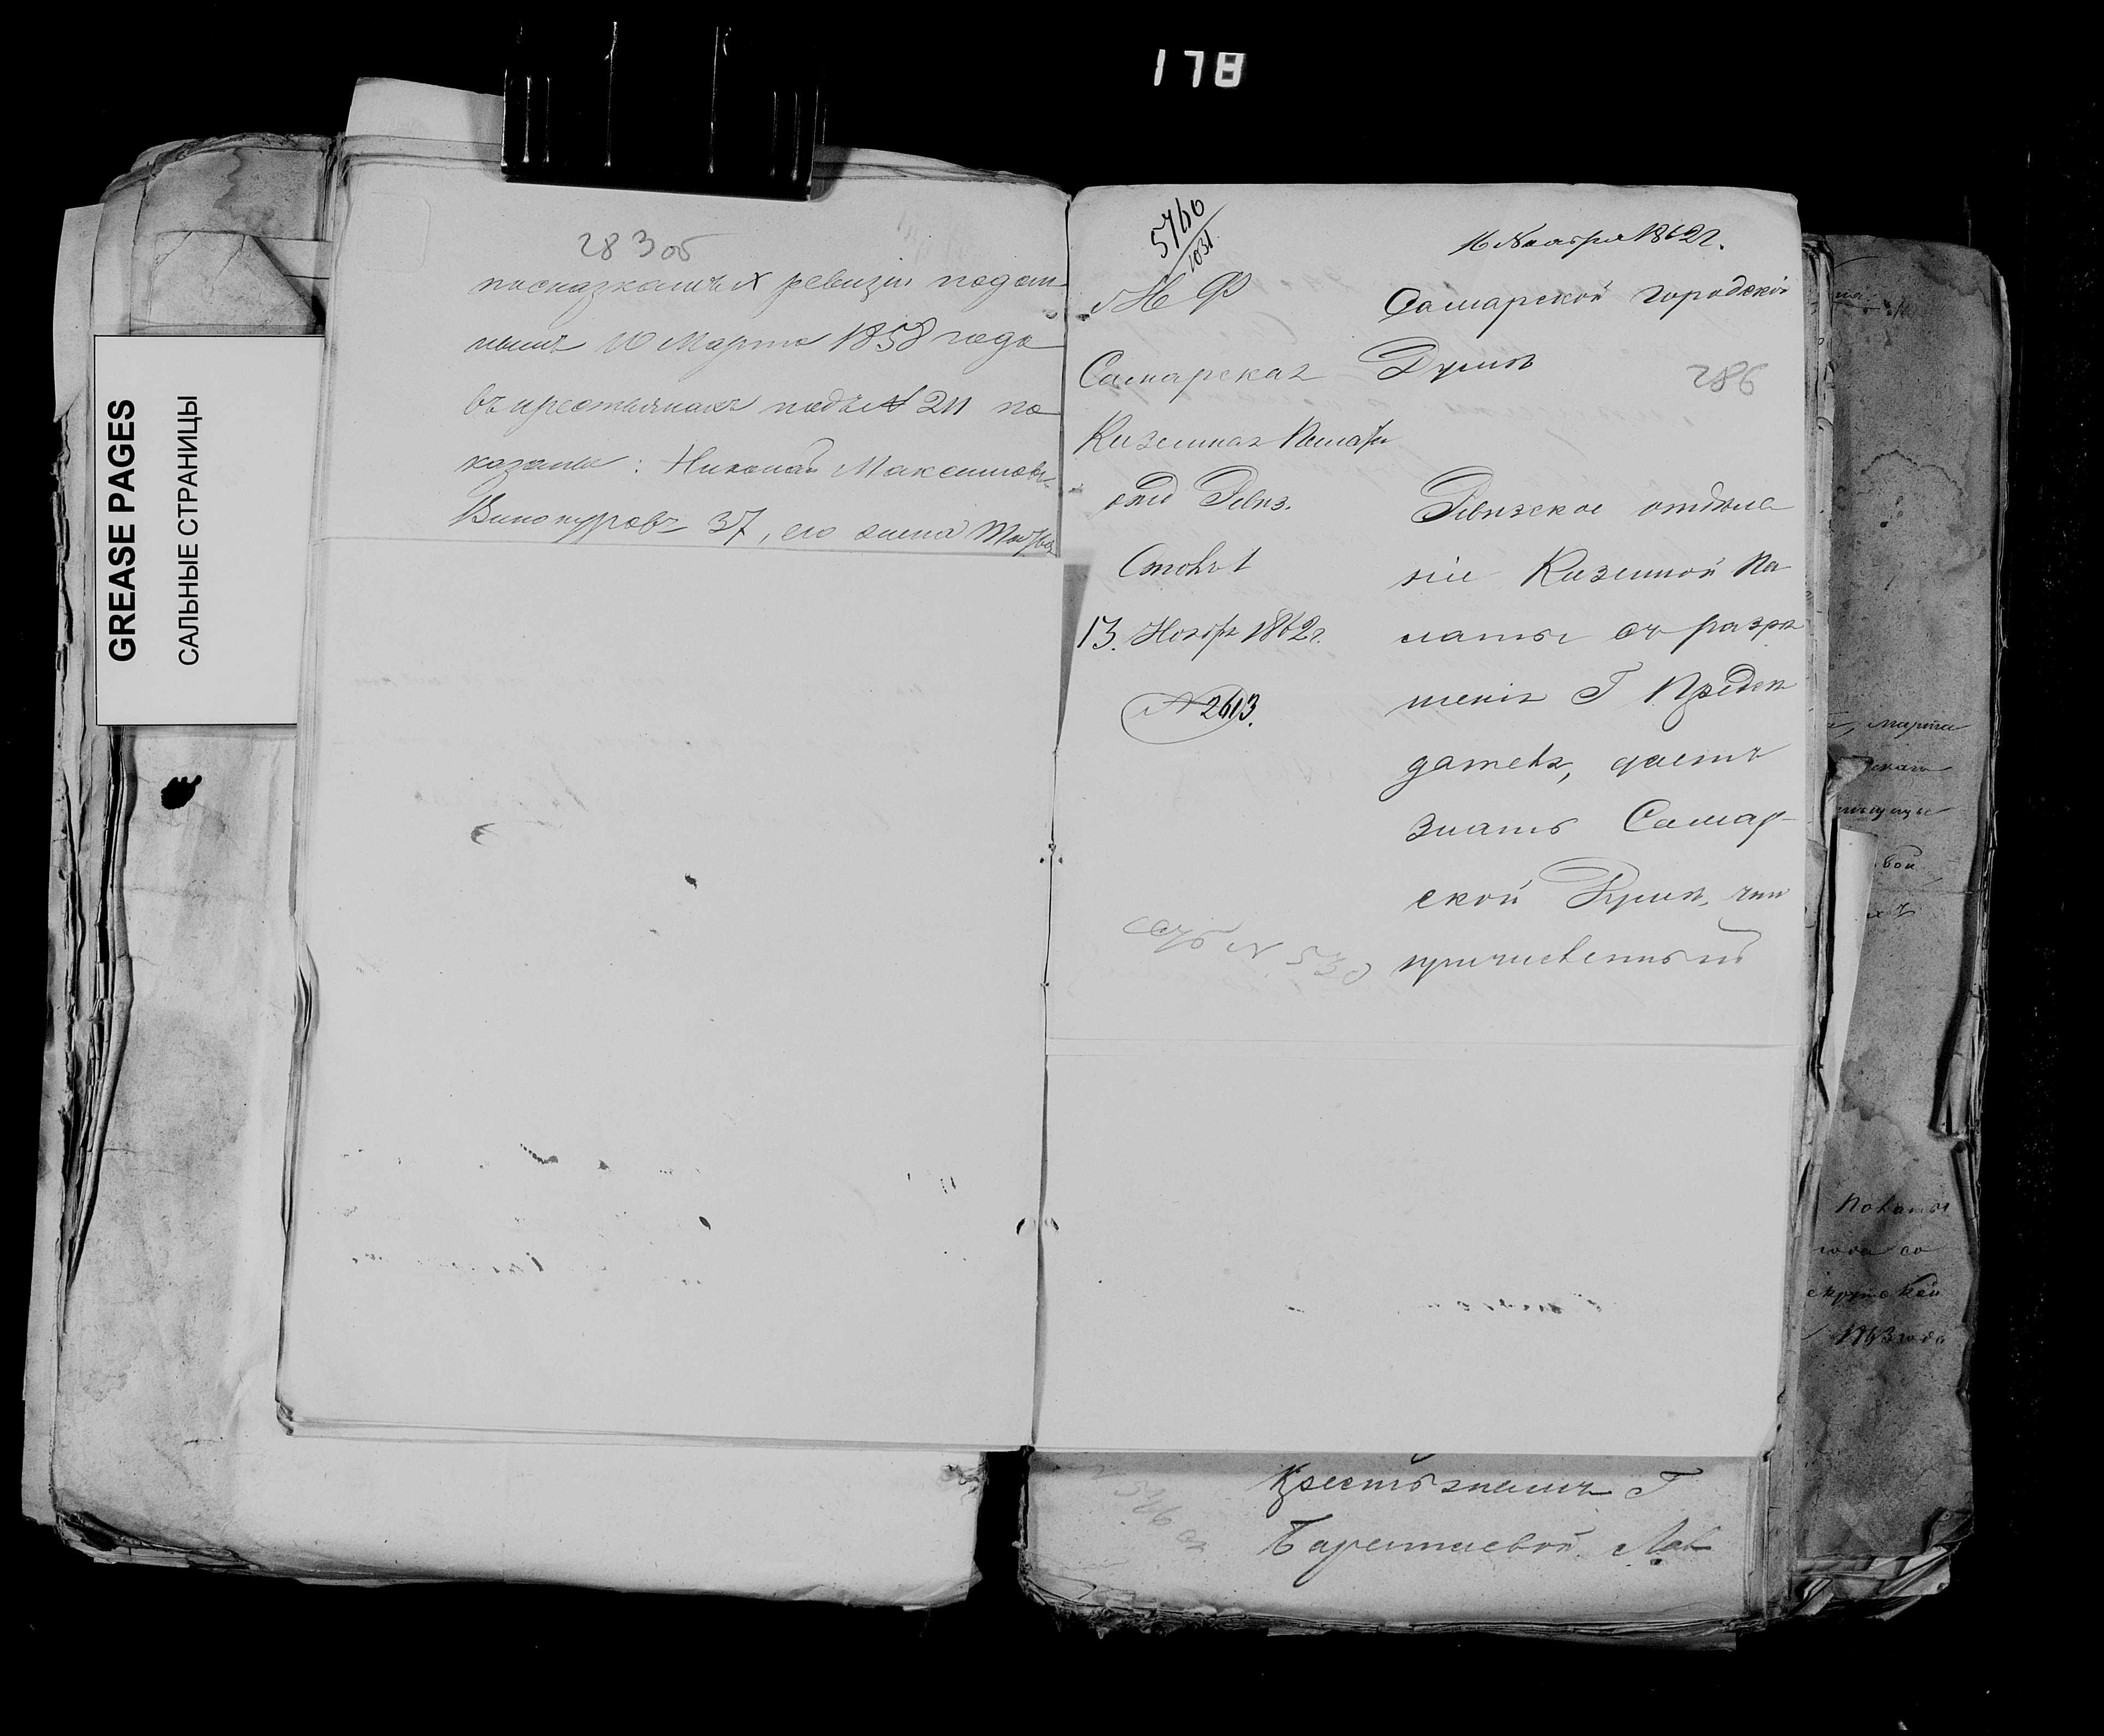 178
GREASE PAGES
САЛЬНЫЕ СТРАНИЦЫ
283 об
посказкамъ X ревизіи подан
нымъ 10 Марта 1858 года
въ крестьянахъ подъ № 211 по
казаны: Николай Максимовъ
Винокуровъ 37, его жена
5760/1031
М Ф
Самарская
Казенная Палата
отд Ревиз.
Столъ 1
13. Ноябр 1862 г.
№ 2613.
№ 530
16 Ноября 1862 г.
Самарской городской
Думѣ
286
Ревизское отдѣле
ніе Казенной Па
латы съ разрѣ
шенія Г Предсѣ
дателя, даетъ
знать Самар-
ской Думѣ, что
причисленный
Крестьянинъ Г
марта
Палаты
года со
1863 года